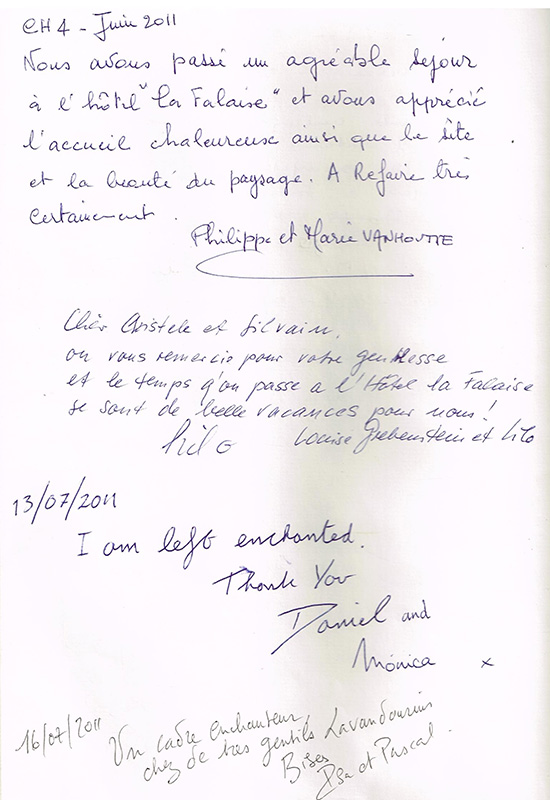 CH4 - Juin 2011
Nous avons passé un agréable séjour
à l'hôtel "la Falaise" et avons apprécié
l'accueil chaleureuse ainsi que le site
et la beauté du paysage. A Refaire très
certainement.
Philippe et Marie VANHOUTTE
Chèr Cristele et Silvain,
on vous remercie pour votre gentillesse
et le temps q'on passe a l'Hôtel la Falaise
se sont de belle vacances pour nous!
Lilo Louise Grebenstein et Lilo
13/07/2011
I am left enchanted.
Thank You
Daniel and
Mónica x
16/07/2011 Un cadre enchanteur,
chez de tres gentils Lavandourins
Bises
et Pascal.